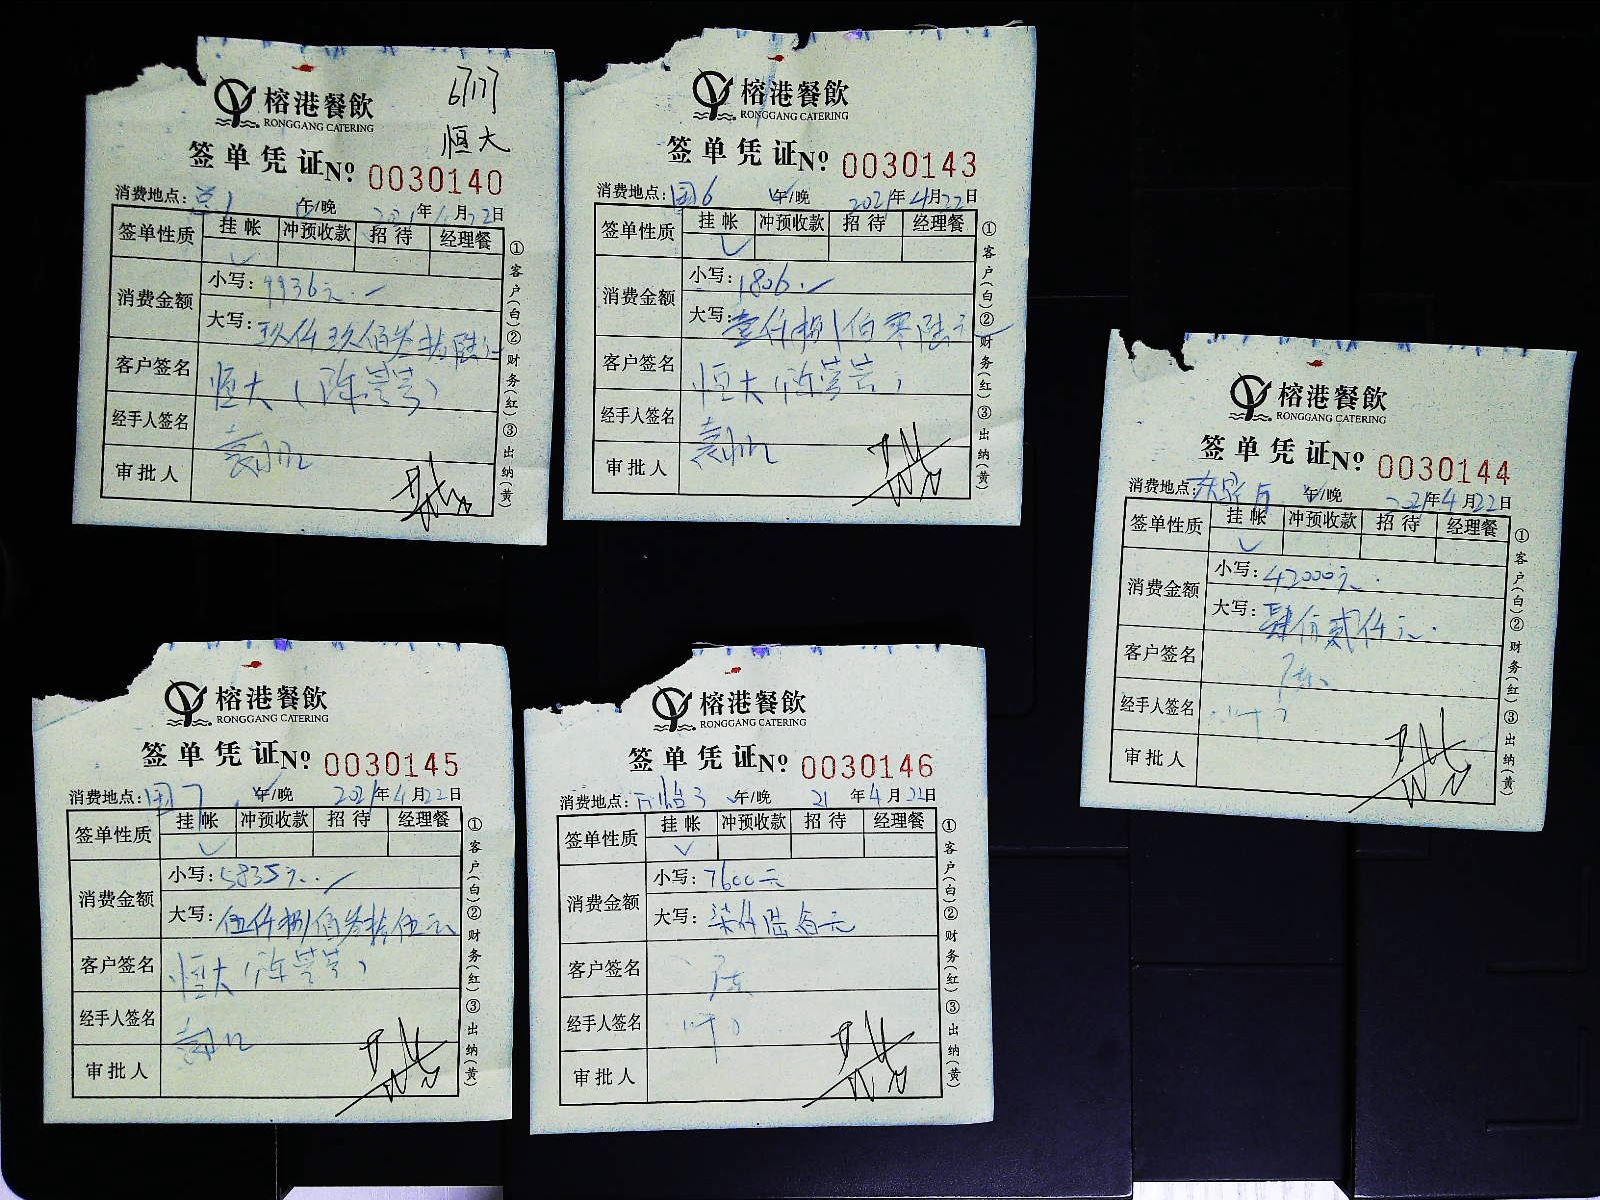 榕港餐飲
RONGGANG CATERING
6/17
恒大
签单凭证 Nº 0030140
消费地点: 午/晚 2021年 月22日
签单性质 挂帐 冲预收款 招待 经理餐
消费金额 小写: 9936元.
大写: 玖仟玖佰叁拾陆元
客户签名 恒大(陈
经手人签名
审批人
①客户(白)②财务(红)③出纳(黄)
榕港餐飲
RONGGANG CATERING
签单凭证 Nº 0030143
消费地点: 国6 午/晚 2021年4月22日
签单性质 挂帐 冲预收款 招待 经理餐
消费金额 小写: 1806.
大写: 壹仟捌佰零陆元
客户签名 恒大(陈
经手人签名
审批人
①客户(白)②财务(红)③出纳(黄)
榕港餐飲
RONGGANG CATERING
签单凭证 Nº 0030144
消费地点: 午/晚 2021年4月22日
签单性质 挂帐 冲预收款 招待 经理餐
消费金额 小写: 42000元.
大写: 肆 贰仟元.
客户签名 陈
经手人签名 叶
审批人
①客户(白)②财务(红)③出纳(黄)
榕港餐飲
RONGGANG CATERING
签单凭证 Nº 0030145
消费地点: 国7 午/晚 2021年4月22日
签单性质 挂帐 冲预收款 招待 经理餐
消费金额 小写: 5835元.
大写: 伍仟捌佰叁拾伍元
客户签名 恒大(陈
经手人签名
审批人
①客户(白)②财务(红)③出纳(黄)
榕港餐飲
RONGGANG CATERING
签单凭证 Nº 0030146
消费地点: 怡3 午/晚 21年4月22日
签单性质 挂帐 冲预收款 招待 经理餐
消费金额 小写: 7600元
大写: 柒仟陆佰元
客户签名 陈
经手人签名 叶
审批人
①客户(白)②财务(红)③出纳(黄)